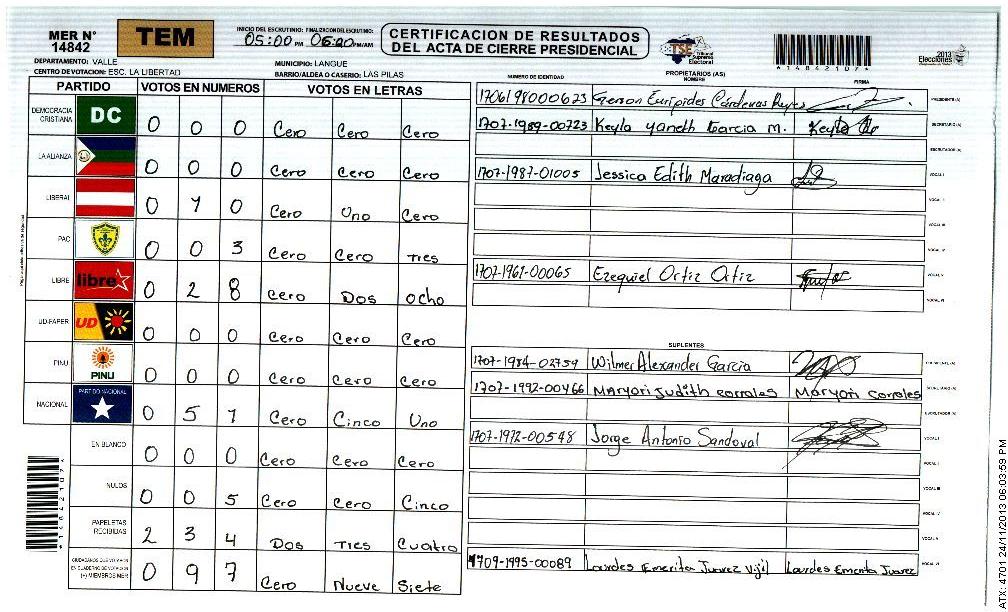 MER N° 14842
TEM
INICIO DEL ESCRUTINIO: 05:00 PM
FINALIZACION DEL ESCRUTINIO: 06:20 PM/AM
CERTIFICACION DE RESULTADOS
DEL ACTA DE CIERRE PRESIDENCIAL
TSE Tribunal Supremo Electoral
*14842107*
2013 Elecciones
DEPARTAMENTO: VALLE
MUNICIPIO: LANGUE
CENTRO DE VOTACION: ESC. LA LIBERTAD
BARRIO/ALDEA O CASERIO: LAS PILAS
PARTIDO VOTOS EN NUMEROS VOTOS EN LETRAS
DEMOCRACIA CRISTIANA DC 0 0 0 Cero Cero Cero
LA ALIANZA 0 0 0 Cero Cero Cero
LIBERAL 0 1 0 Cero Uno Cero
PAC 0 0 3 Cero Cero Tres
LIBRE libre 0 2 8 Cero Dos Ocho
UD-FAPER UD 0 0 0 Cero Cero Cero
PINU PINU 0 0 0 Cero Cero Cero
NACIONAL PARTIDO NACIONAL 0 5 1 Cero Cinco Uno
EN BLANCO 0 0 0 Cero Cero Cero
NULOS 0 0 5 Cero Cero Cinco
PAPELETAS RECIBIDAS 2 3 4 Dos Tres Cuatro
CIUDADANOS QUE VOTARON EN CUADERNO DE VOTACION (+) MIEMBROS MER 0 9 7 Cero Nueve Siete
*14842107*
NUMERO DE IDENTIDAD PROPIETARIOS (AS) NOMBRE FIRMA
1706198000623 Gerson Eurípides Cárdenas Reyes PRESIDENTE (A)
1707-1989-00723 Keyla Yaneth Garcia M. Keyla SECRETARIO (A)
ESCRUTADOR (A)
1707-1987-01005 Jessica Edith Maradiaga VOCAL I
VOCAL II
VOCAL III
VOCAL IV
1707-1967-00065 Ezequiel Ortiz Ortiz VOCAL V
VOCAL VI
SUPLENTES
1707-1984-02759 Wilmer Alexander Garcia PRESIDENTE (A)
1707-1992-00466 Maryori Judith corrales Maryori corrales SECRETARIO (A)
ESCRUTADOR (A)
1707-1972-00548 Jorge Antonio Sandoval VOCAL I
VOCAL II
VOCAL III
VOCAL IV
VOCAL V
1709-1995-00089 Lourdes Emerita Juarez Vijil Lourdes Emerita Juarez VOCAL VI
ATX: 4701 24/11/2013 06:03:59 PM